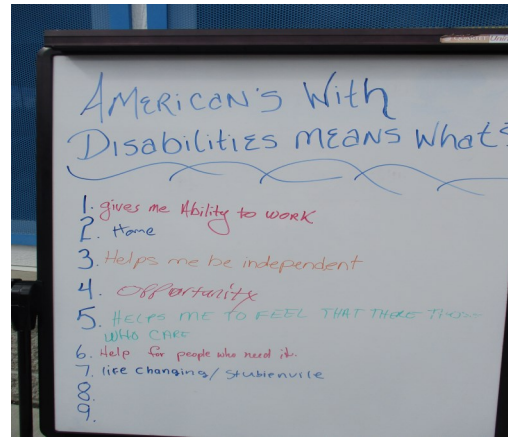 AMERICAN'S With
DISabilitiES MEANS What?
1. gives me Ability to WORK
2. Home
3. Helps me be independent
4. Opportunity
5. HELPS ME TO FEEL THAT THERE
WHO CARE
6. Help for people who need it.
7. life changing/ Stubienville
8.
9.